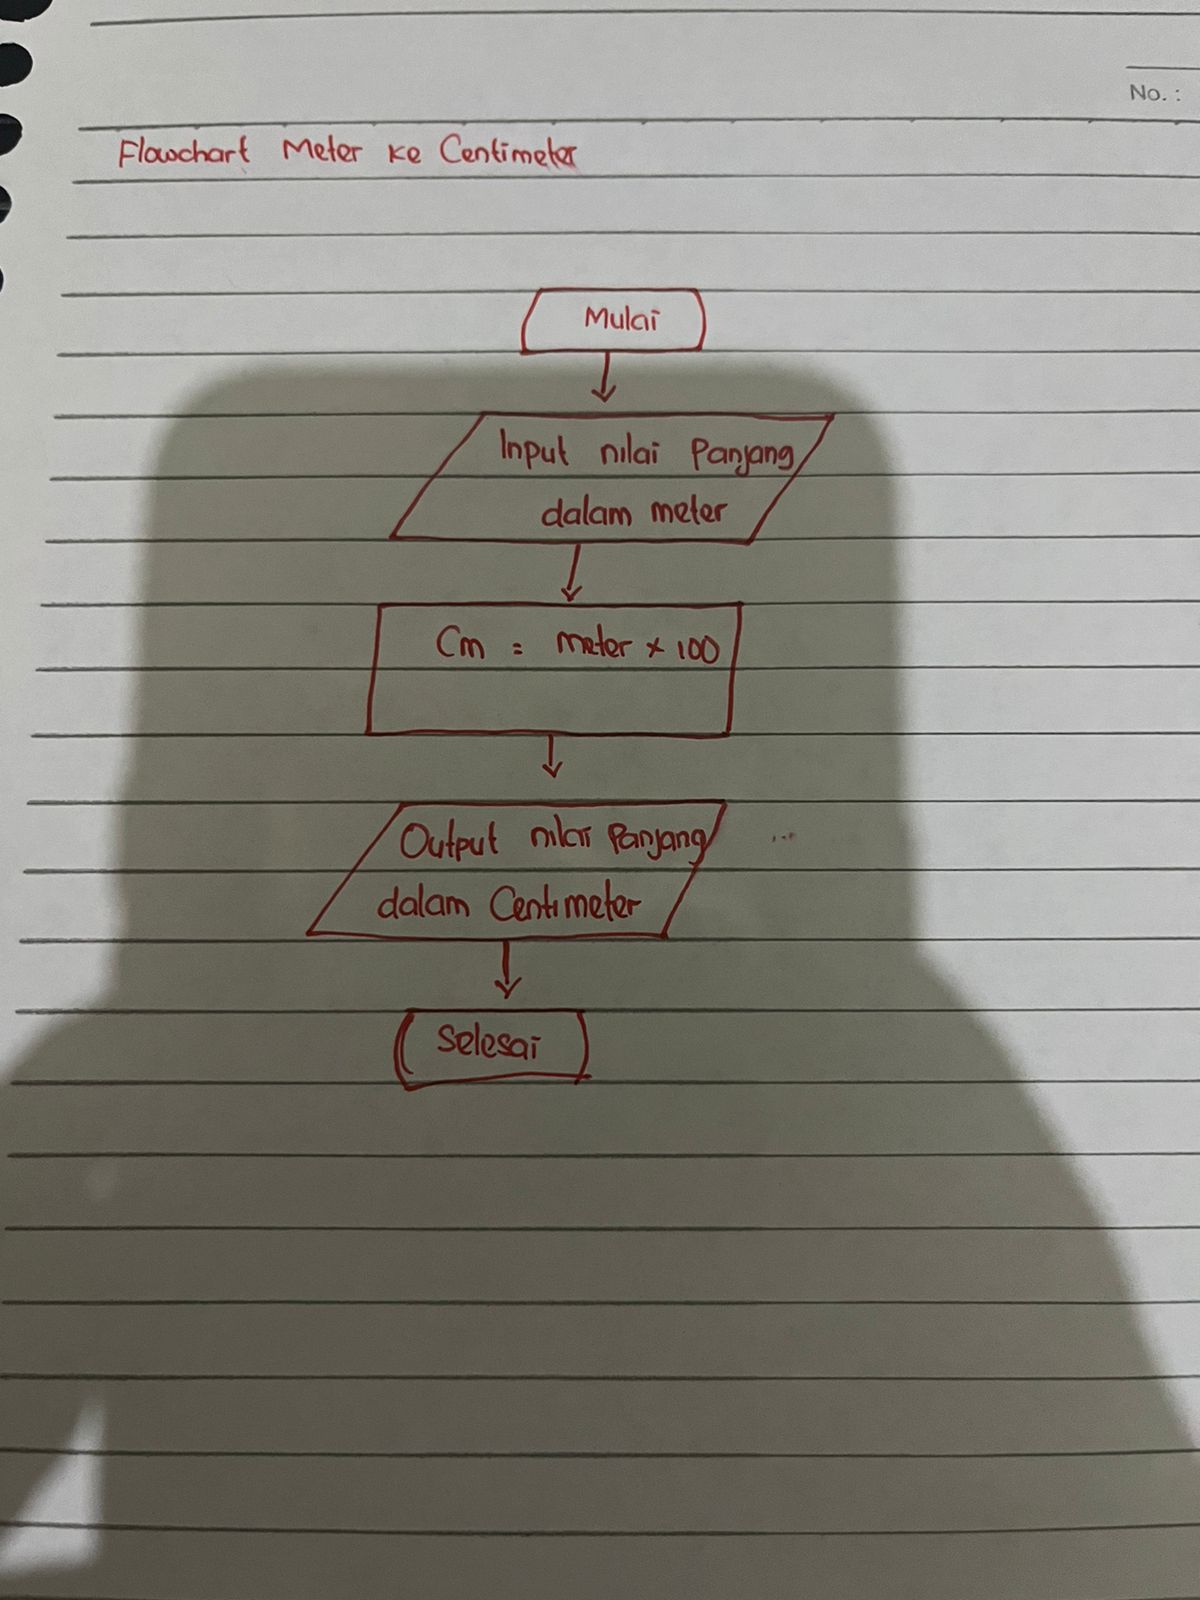 No. :
Flowchart Meter ke Centimeter
Mulai
Input nilai Panjang
dalam meter
Cm = meter × 100
Output nilai Panjang
dalam Centimeter
Selesai